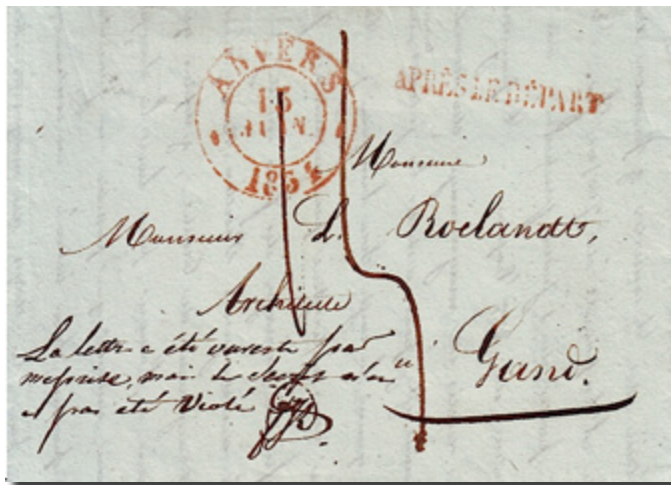 ANVERS
15
JUIN
1834
APRÈS LE DÉPART
Monsieur
Monsieur L. Roelandts,
Architecte
Gand.
La lettre a été ouverte par
meprise, mais le n'en
a pas été violé